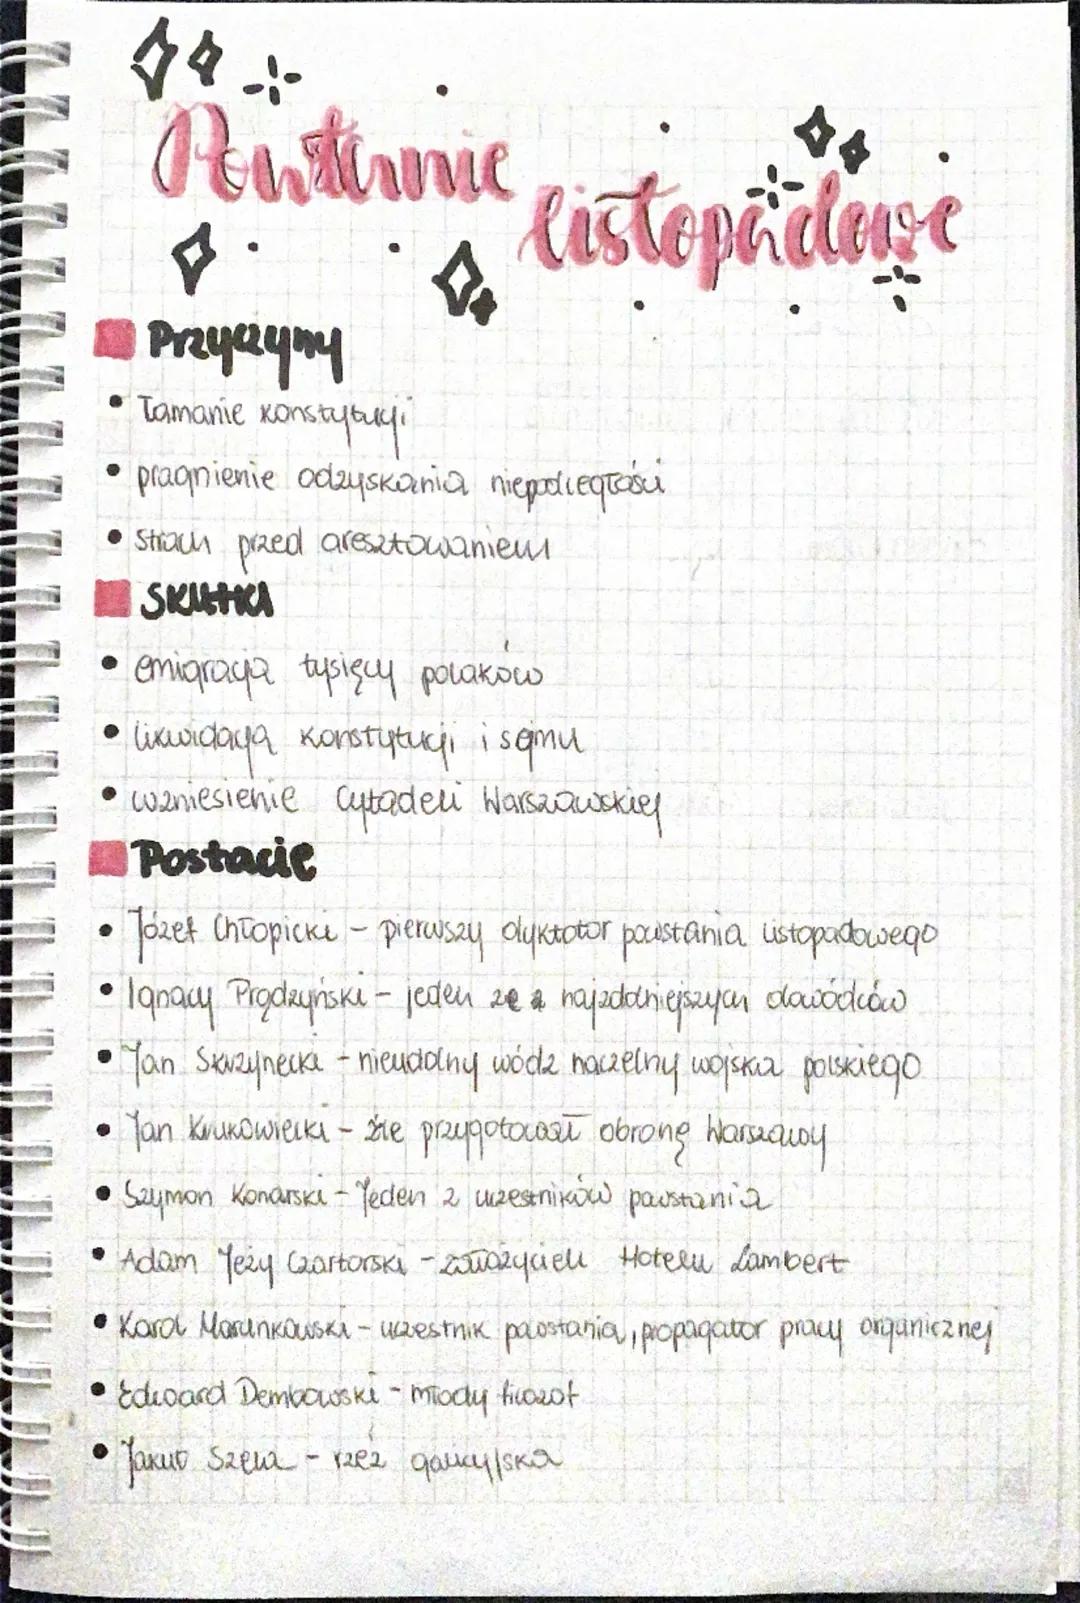 Powstanie
listopadowe
Przyczyny
• Łamanie konstytucji
• pragnienie odzyskania niepodległości
• strach przed aresztowaniem
Skutki
• emigracja tysięcy polaków
• likwidacja konstytucji i sejmu
• wzniesienie Cytadeli Warszawskiej
Postacie
• Józef Chłopicki - pierwszy dyktator powstania listopadowego
• Ignacy Prądzyński - jeden z najzdolniejszych dowódców
• Jan Skrzynecki - nieudolny wódz naczelny wojska polskiego
• Jan Krukowiecki - źle przygotował obronę Warszawy
• Szymon Konarski - Jeden z uczestników powstania
• Adam Jeży Czartorski - założycieli Hotelu Lambert
• Karol Marcinkowski - uczestnik powstania, propagator pracy organicznej
• Edward Dembowski - młody filozof
• Jakub Szela - rzeź galicyjska